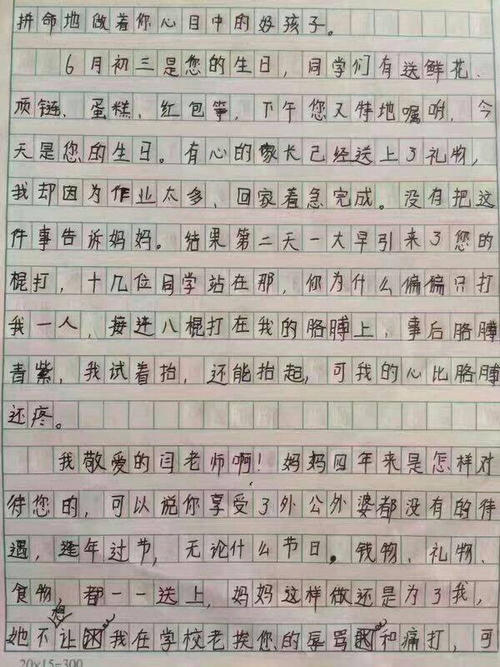 拼命地做着你心目中的好孩子。
6月初三是您的生日，同学们有送鲜花、
项链、蛋糕、红包等，下午您又特地嘱咐，今
天是您的生日。有心的家长已经送上了礼物，
我却因为作业太多、回家着急完成。没有把这
件事告诉妈妈。结果第二天一大早引来了您的
棍打，十几位同学站在那，你为什么偏偏只打
我一人，接连八棍打在我的胳膊上，事后胳膊
青紫，我试着抬，还能抬起，可我的心比胳膊
还疼。
我敬爱的闫老师啊！妈妈四年来是怎样对
待您的，可以说你享受了外公外婆都没有的待
遇，逢年过节，无论什么节日。钱物、礼物、
食物，都一一送上，妈妈这样做还是为了我，
她不让我在学校老挨您的辱骂和痛打，可
20×15=300